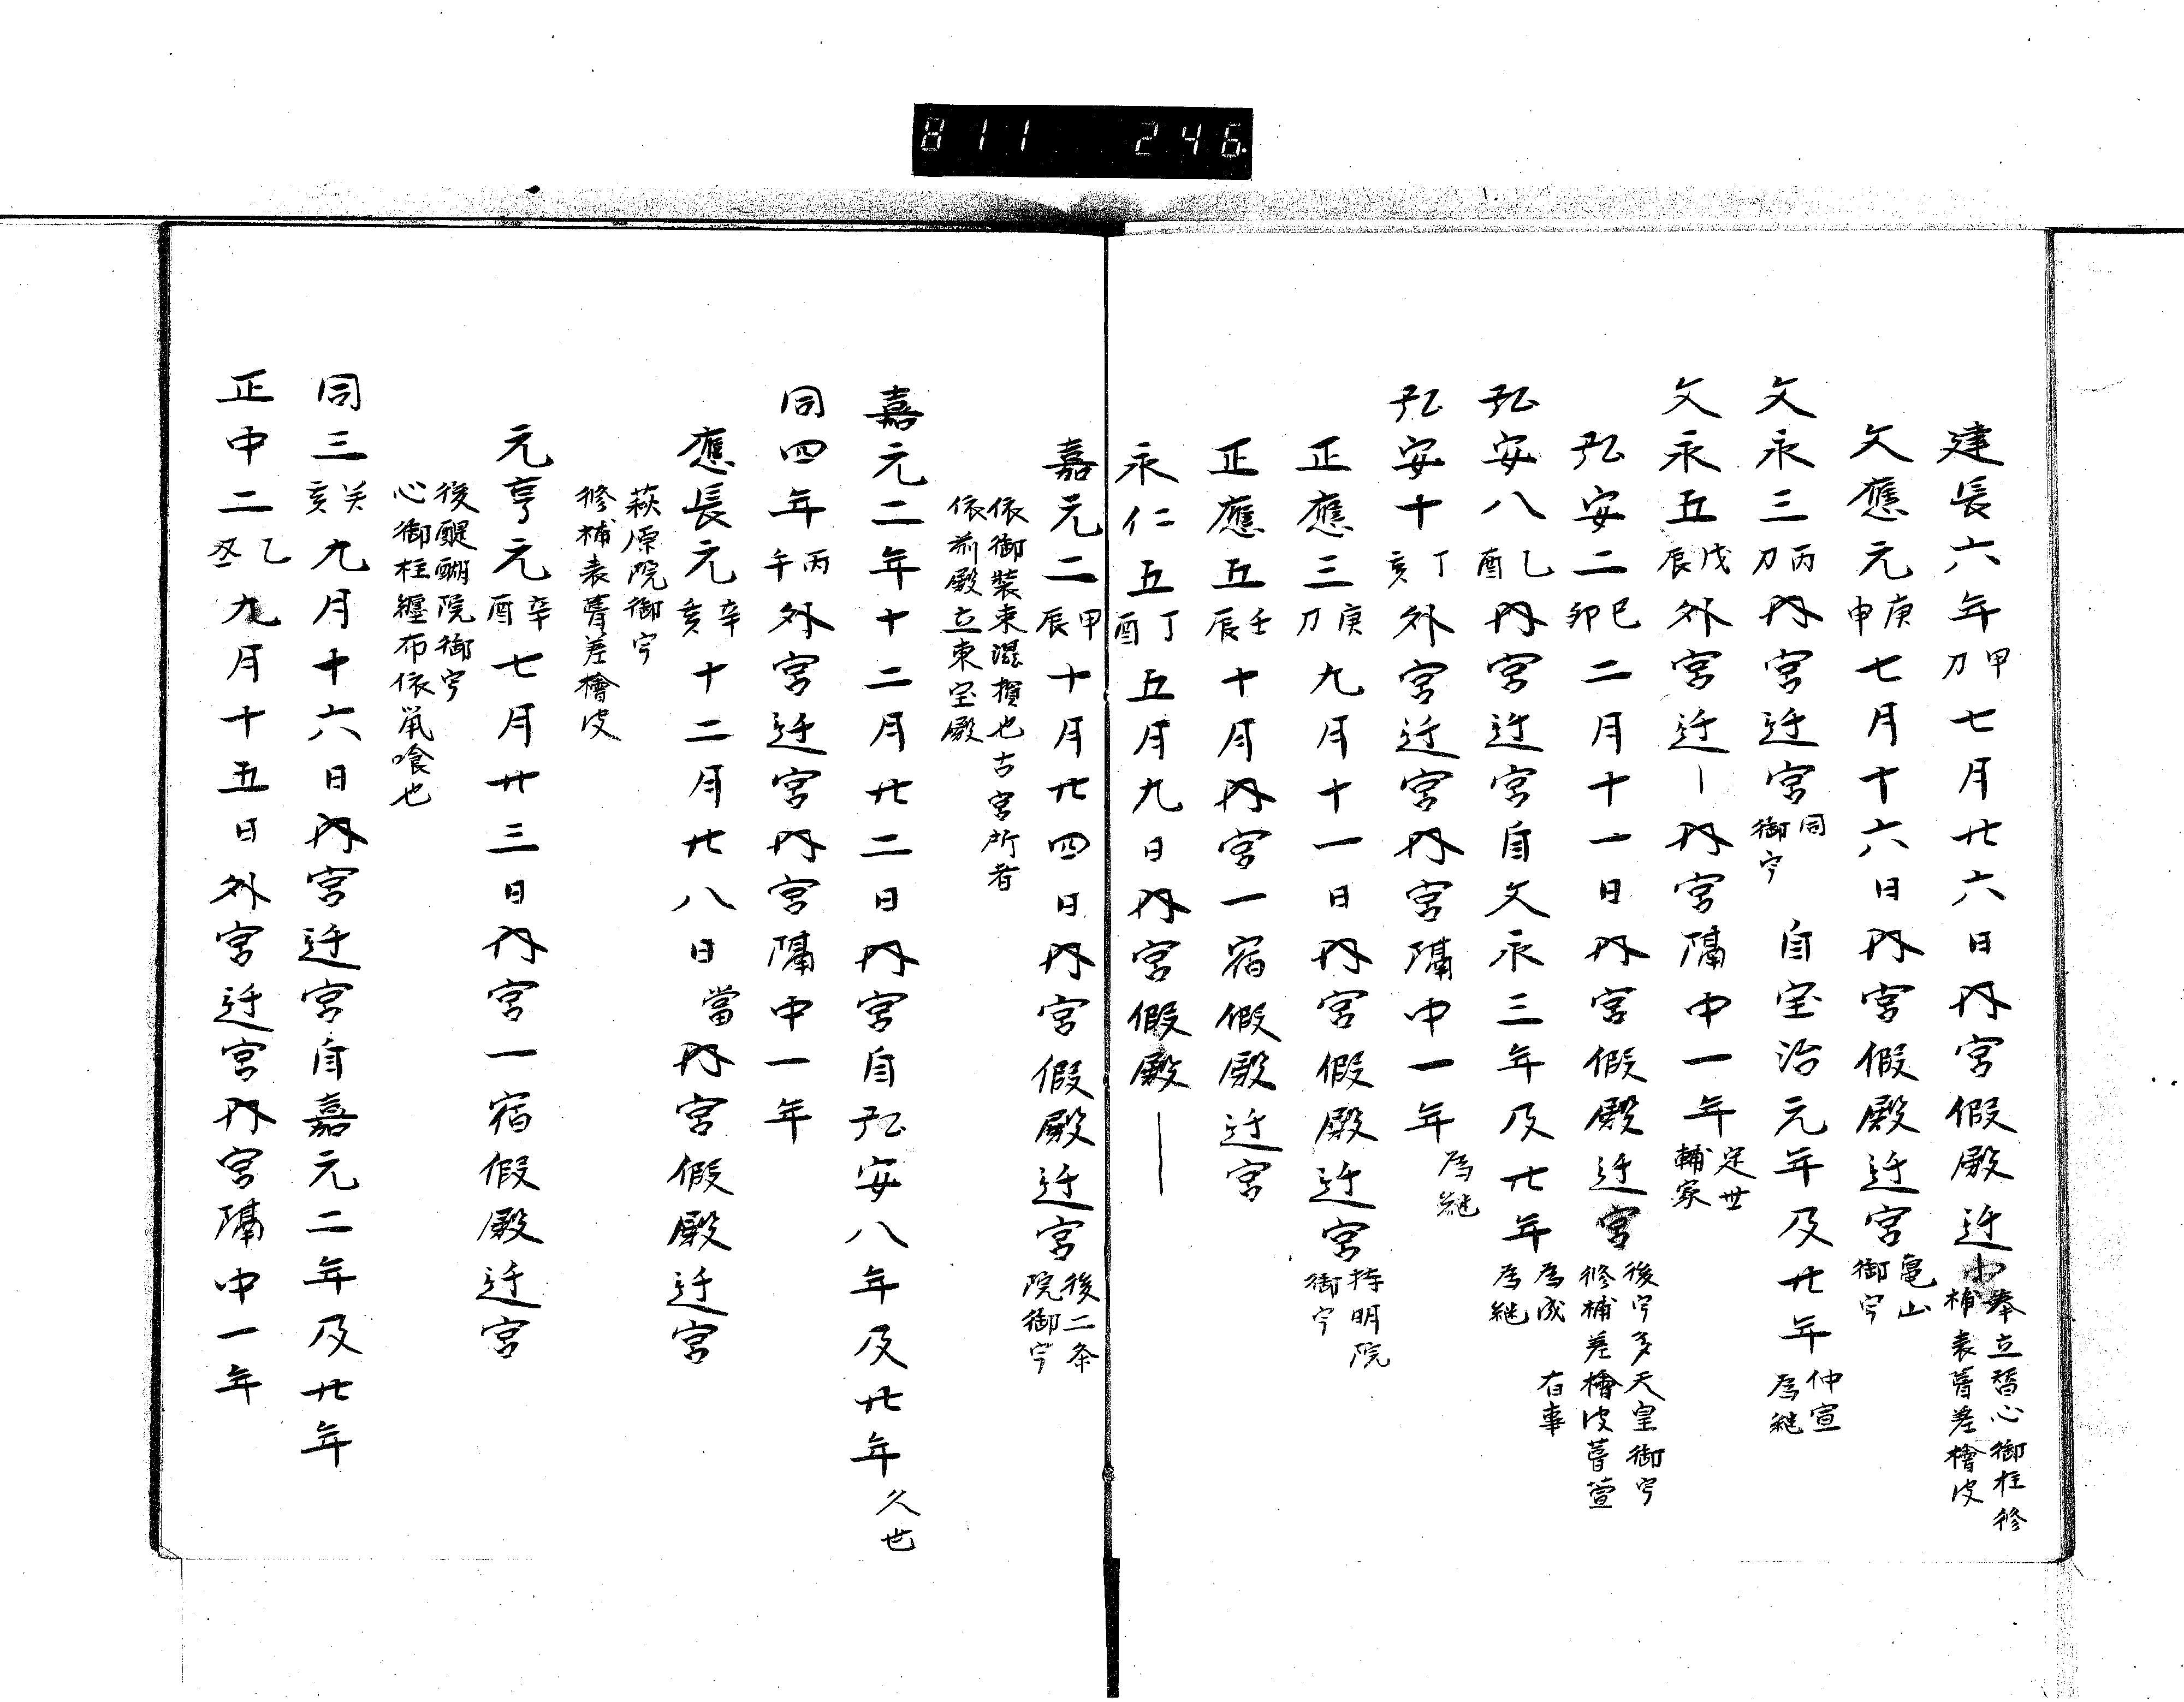 811 246
建長六年甲刀七月廿六日内宮假殿迁宮奉立替心御柱修
補表葺差檜皮
文應元庚申七月十六日内宮假殿迁宮亀山
御宇
文永三丙刀内宮迁宮同
御宇 自宝治元年及廿年仲宣
為継
文永五戊辰外宮迁｜内宮隔中一年定世
輔家
弘安二己卯二月十一日内宮假殿迁宮後宇多天皇御宇
修補差檜皮葺萱
弘安八乙酉内宮迁宮自文永三年及廿年為成
為継 有事
弘安十丁亥外宮迁宮内宮隔中一年為継
正應三庚刀九月十一日内宮假殿迁宮持明院
御宇
正應五壬辰十月内宮一宿假殿迁宮
永仁五丁酉五月九日内宮假殿｜
嘉元二甲辰十月廿四日内宮假殿迁宮後二条
院御宇
依御装束湿損也古宮所者
依前殿立東宝殿
嘉元二年十二月廿二日内宮自弘安八年及廿年久世
同四年丙午外宮迁宮内宮隔中一年
應長元辛亥十二月廿八日當内宮假殿迁宮
萩原院御宇
修補表葺差檜皮
元亨元辛酉七月廿三日内宮一宿假殿迁宮
後醍醐院御宇
心御柱纒布依鼠喰也
同三癸亥九月十六日内宮迁宮自嘉元二年及廿年
正中二乙丑九月十五日外宮迁宮内宮隔中一年